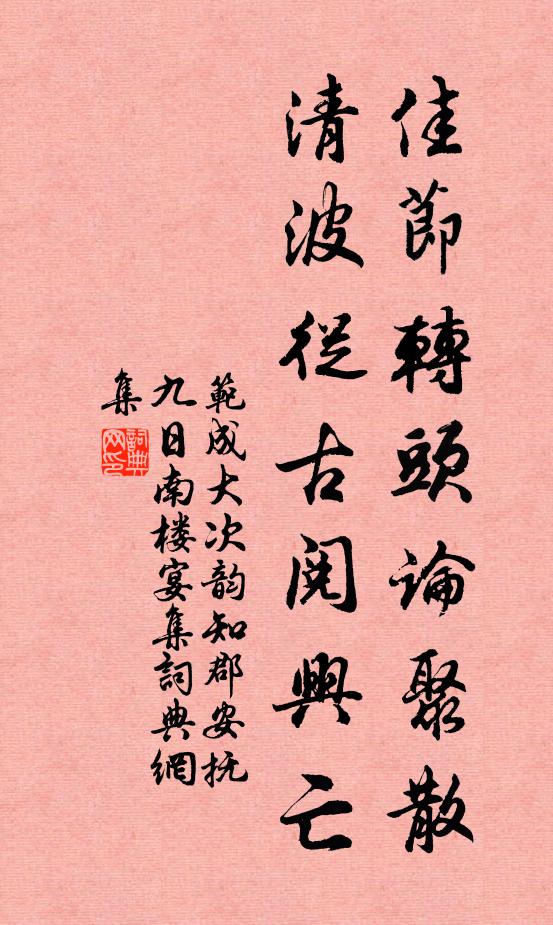 佳節轉頭論聚散
清波從古閱興亡
範成大次韵知郡安抚
九日南楼宴集詞典網
集
詞典网印